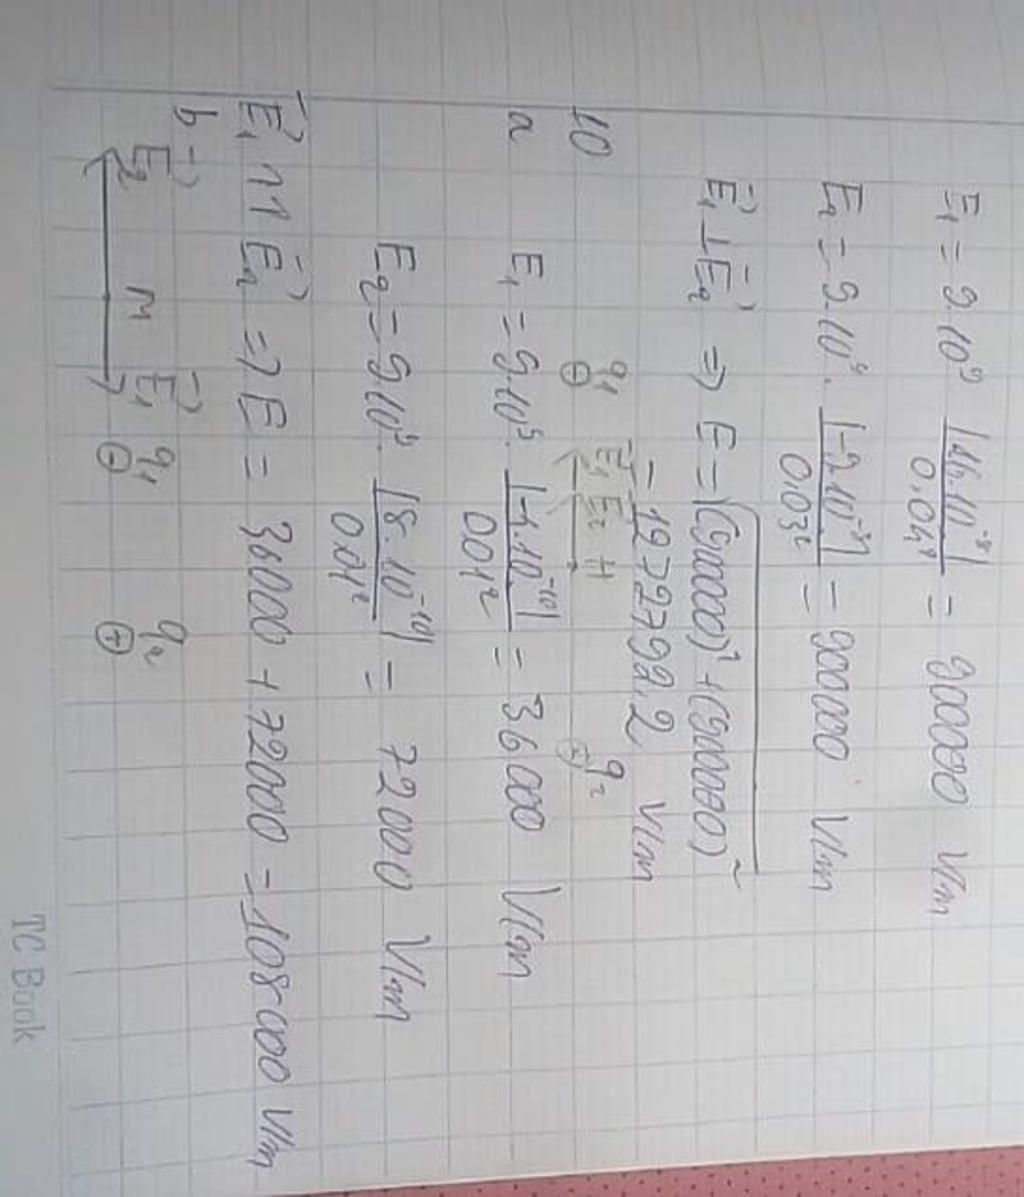 E₁ = 9.10⁹ |16.10⁻⁸| / 0.04² = 900000 V/m
E₂ = 9.10⁹. |-9.10⁻⁸| / 0.03² = 900000 V/m
E₁ ⊥ E₂ => E = √(900000)² + (900000)²
= 1272792,2 V/m
10 q₁ ⊖ E₁ E₂ H q₂ ⊕
a E₁ = 9.10⁹. |-4.10⁻¹⁰| / 0.01² = 36000 V/m
E₂ = 9.10⁹. |8.10⁻¹⁰| / 0.01² = 72000 V/m
E₁ ↑↑ E₂ => E = 36000 + 72000 = 108000 V/m
b E₂ M E₁ q₁ ⊖ q₂ ⊕
TC Book